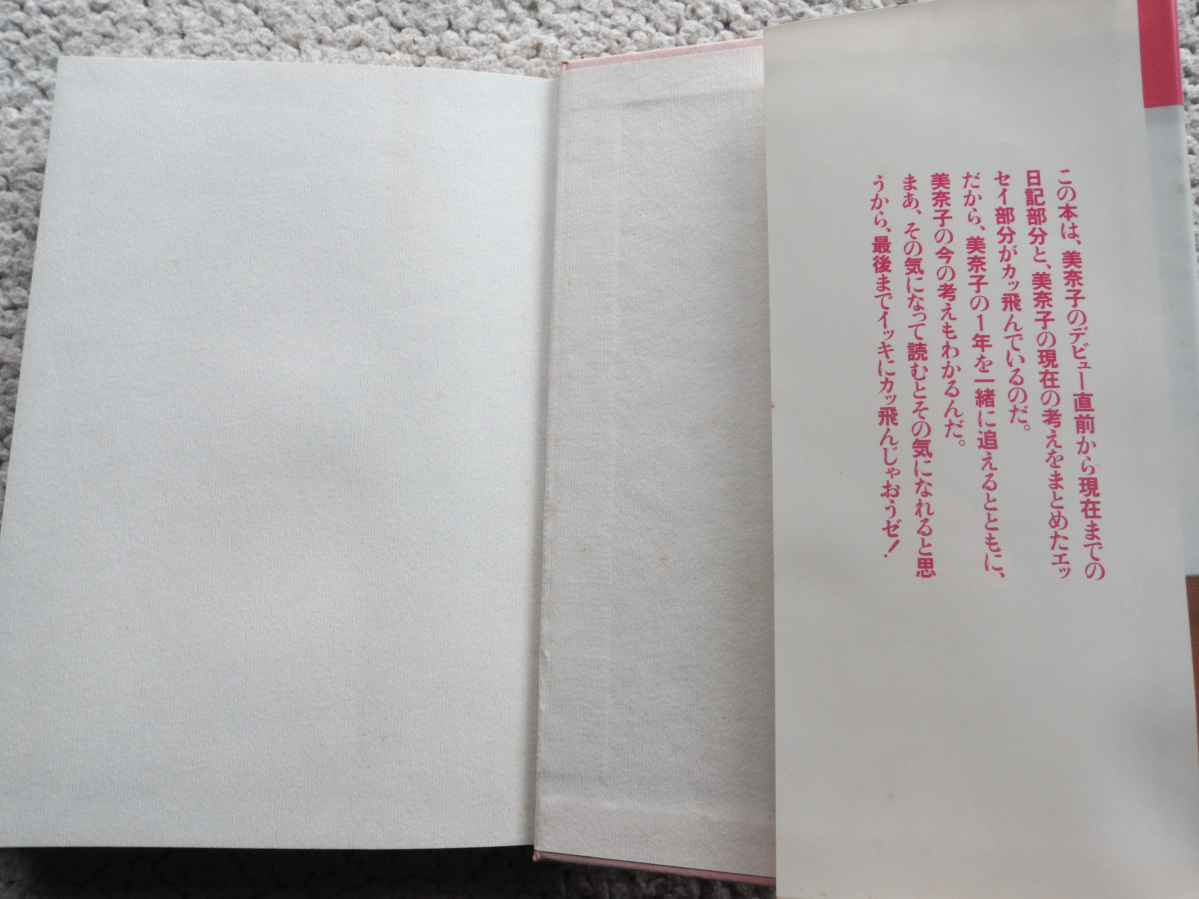 この本は、美奈子のデビュー直前から現在までの
日記部分と、美奈子の現在の考えをまとめたエッ
セイ部分がカッ飛んでいるのだ。
だから、美奈子の1年を一緒に追えるとともに、
美奈子の今の考えもわかるんだ。
まあ、その気になって読むとその気になれると思
うから、最後までイッキにカッ飛んじゃおうゼ!